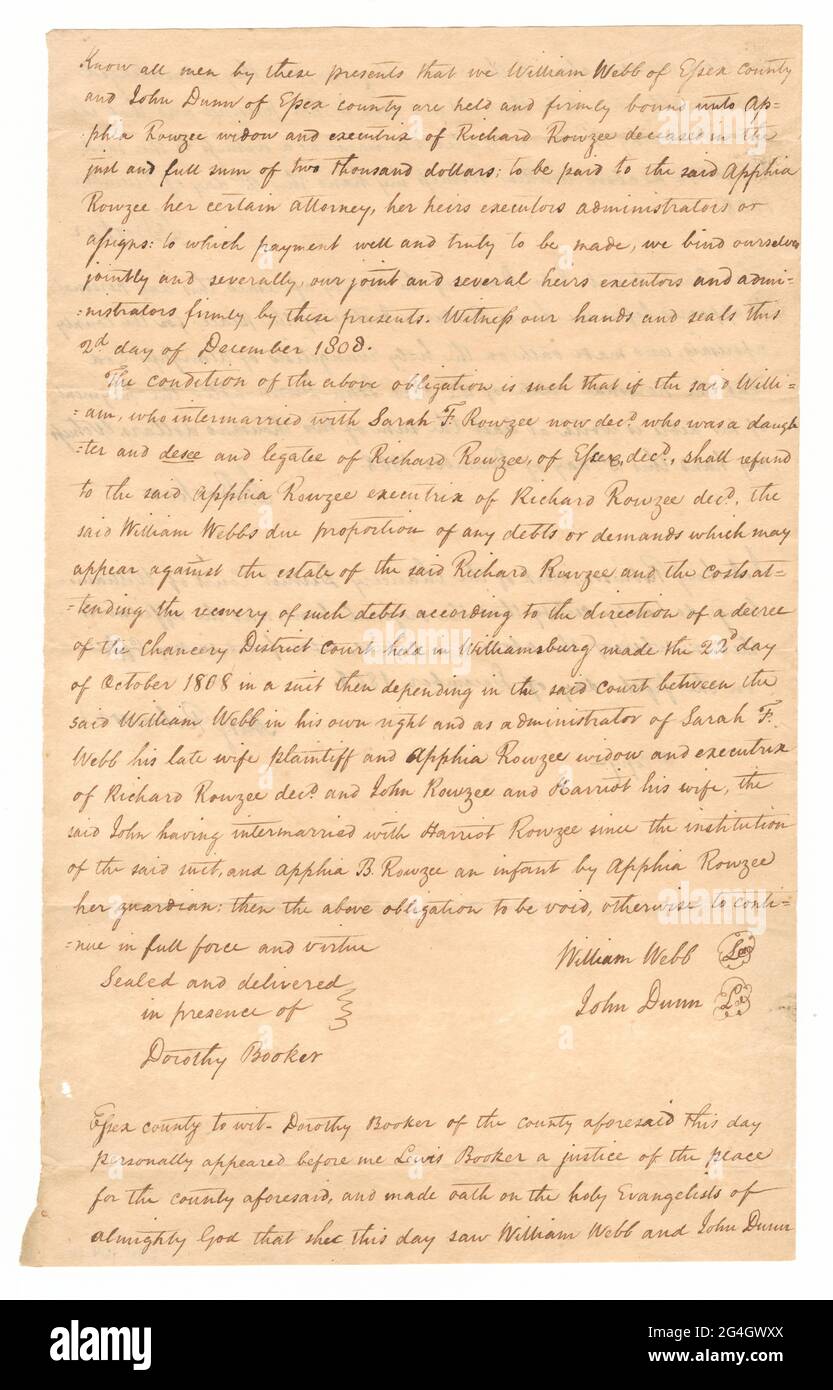 Know all men by these presents that we William Webb of Essex County
and John Dunn of Essex county are held and firmly bound unto Ap=
phia Rowzee widow and executrix of Richard Rowzee deceased in the
just and full sum of two thousand dollars: to be paid to the said Apphia
Rowzee her certain attorney, her heirs executors administrators or
assigns: to which payment well and truly to be made, we bind ourselves
jointly and severally, our joint and several heirs executors and admi=
=nistrators firmly by these presents. Witness our hands and seals this
2d day of December 1808.
The condition of the above obligation is such that if the said Willi=
=am, who intermarried with Sarah F. Rowzee now decd. who was a daugh
=ter and desee and legatee of Richard Rowzee, of Essex, decd., shall refund
to the said Apphia Rowzee executrix of Richard Rowzee decd. the
said William Webbs due proportion of any debts or demands which may
appear against the estate of the said Richard Rowzee and the costs at=
=tending the recovery of such debts according to the direction of a decree
of the Chancery District court held in Williamsburg made the 22d day
of October 1808 in a suit then depending in the said court between the
said William Webb in his own right and as administrator of Sarah F.
Webb his late wife plaintiff and Apphia Rowzee widow and executrix
of Richard Rowzee decd. and John Rowzee and Harriot his wife, the
said John having intermarried with Harriot Rowzee since the institution
of the said suit, and Apphia B. Rowzee an infant by Apphia Rowzee
her guardian: then the above obligation to be void, otherwise to conti=
=nue in full force and virtue
William Webb
Sealed and delivered
John Dunn
in presence of
Dorothy Booker
Essex county to wit. Dorothy Booker of the county aforesaid this day
personally appeared before me Lewis Booker a justice of the peace
for the county aforesaid, and made oath on the holy Evangelists of
almighty God that she this day saw William Webb and John Dunn
alamy
Image ID: 2G4GWXX
www.alamy.com